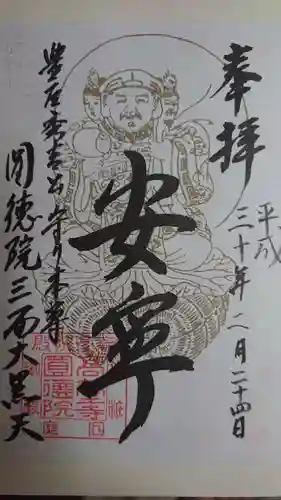 奉拝
平成
三十年二月二十四日
安寧
豊臣秀吉公守り本尊
圓徳院三面大黒天
圓徳院